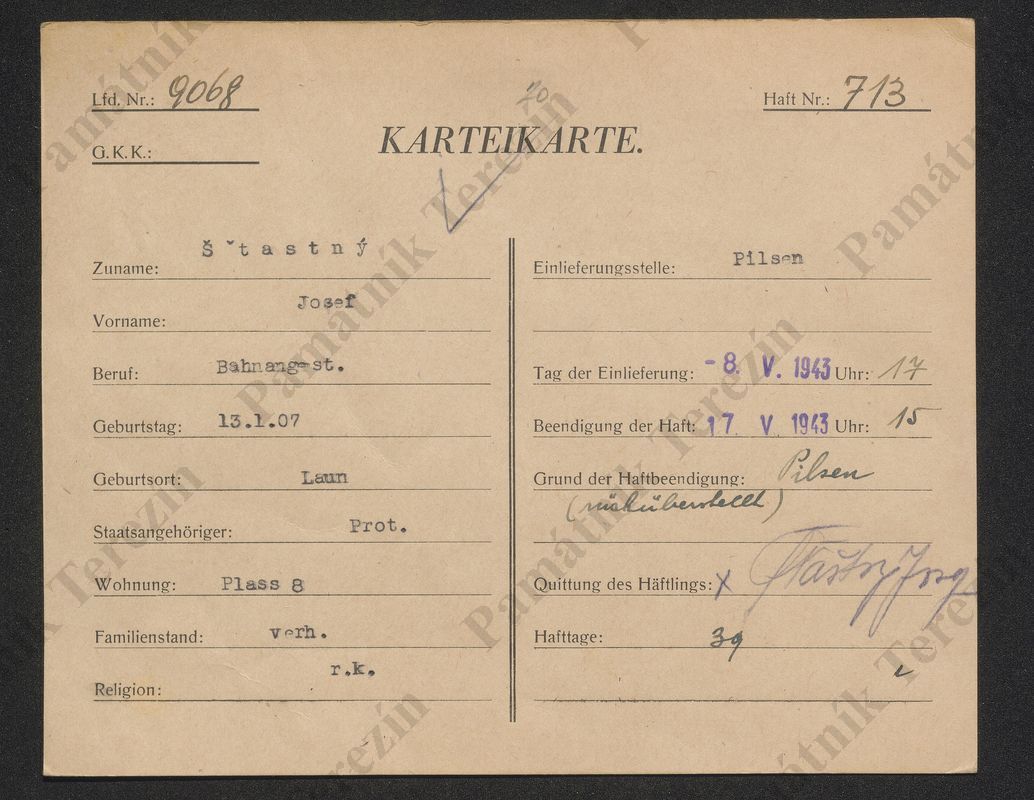 Lfd. Nr.: 9068
Haft Nr.: 713
G.K.K.:
KARTEIKARTE.
Zuname: Šťastný
Vorname: Josef
Beruf: Bahnangest.
Geburtstag: 13.1.07
Geburtsort: Laun
Staatsangehöriger: Prot.
Wohnung: Plass 8
Familienstand: verh.
Religion: r.k.
Einlieferungsstelle: Pilsen
Tag der Einlieferung: -8. V. 1943 Uhr: 17
Beendigung der Haft: 17 V 1943 Uhr: 15
Grund der Haftbeendigung: Pilsen
(rücküberstellt)
Quittung des Häftlings: x Šťastný
Hafttage:
Památník Terezín
Památník Terezín
Památník Terezín
Památník Terezín
Památník Terezín